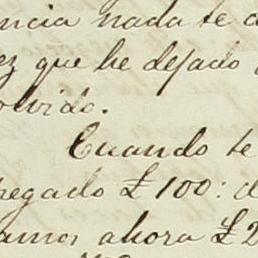 ncia nada te
ez que he dejado
olvido.
Cuando te
regado £100: d
amos ahora £2